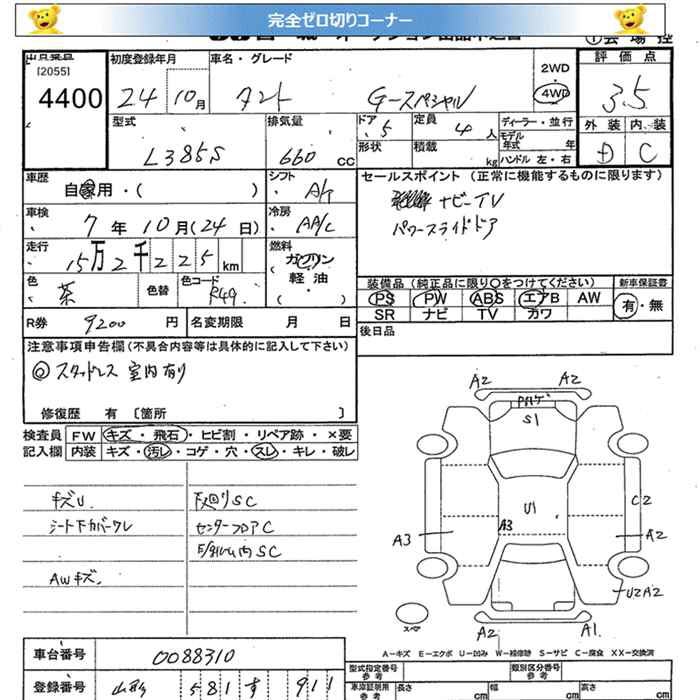 完全ゼロ切りコーナー
出品番号
[2055]
4400
初度登録年月
24 10月
車名・グレード
タント Gースペシャル
2WD
4WD
評価点
3.5
外装 内装
D C
型式
L385S
排気量
660 cc
ドア 5
形状
定員 4 人
積載 kg
ディーラー・並行
モデル年式 年
ハンドル 左・右
車歴
自家用・( )
シフト
A/T
車検
7年 10月(24日)
冷房
AA/C
走行
15万2千225km
燃料
ガソリン
軽・油
( )
色
茶
色替
色コード
R49
R券 9200 円
名変期限 月 日
セールスポイント(正常に機能するものに限ります)
ナビーTV
パワースライドドア
装備品(純正品に限り○をつけてください)
新車保証書
PS PW ABS エアB AW
SR ナビ TV カワ
有・無
後日品
注意事項申告欄(不具合内容等は具体的に記入して下さい)
◎ スタッドレス 室内有り
修復歴 有 [箇所 ]
検査員記入欄
FW キズ・飛石・ヒビ割・リペア跡・×要
内装 キズ・汚レ・コゲ・穴・スレ・キレ・破レ
キズU
シート下カバーワレ
AWキズ
下廻りSC
センターフロアC
SC
A2 A2
S1
U1
A3
C2
A3
A2
U2A2
スペア
A2 A1
A−キズ E−エクボ U−凹み W−補修跡 S−サビ C−腐食 XX−交換済
車台番号 0088310
登録番号 山形 581 す 911
型式指定番号参考
類別区分番号参考
車添証明用参考
長さ cm
幅 cm
高さ cm